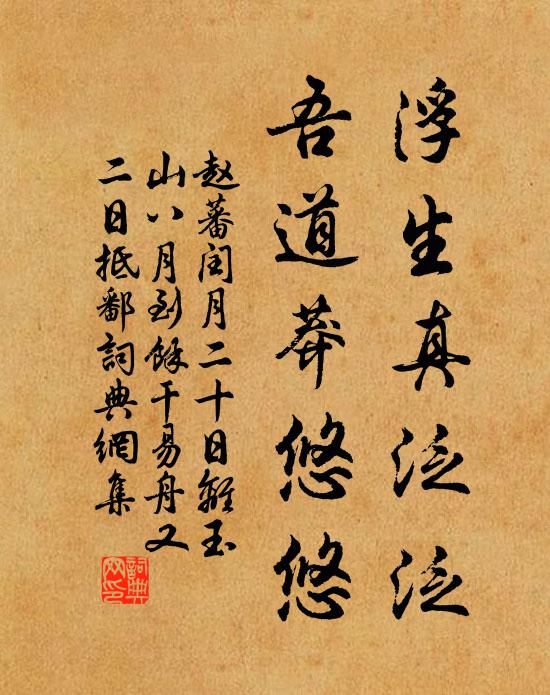 浮生真泛泛
吾道莽悠悠
赵蕃闰月二十日離玉
山八月到餘干易舟又
二日抵鄱詞典網集
詞典
网印